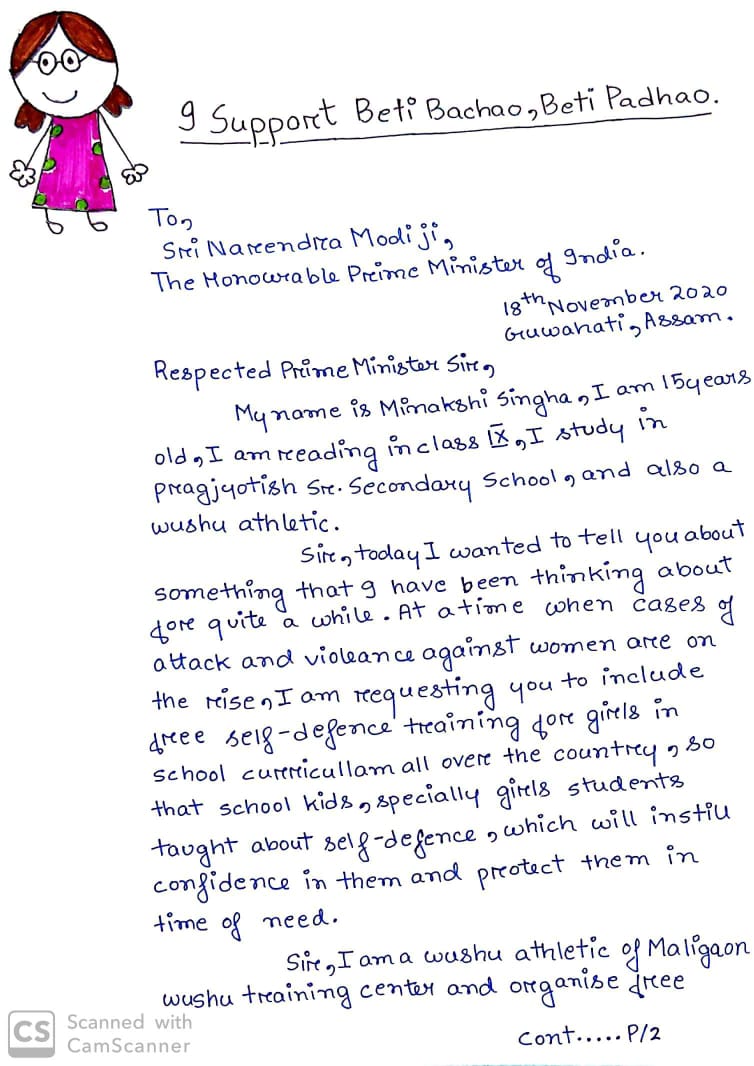 I Support Beti Bachao, Beti Padhao.
To,
Sri Narendra Modi ji,
The Honourable Prime Minister of India.
18th November 2020
Guwahati, Assam.
Respected Prime Minister Sir,
My name is Mimakshi Singha, I am 15 years
old, I am reading in class IX, I study in
pragjyotish Sr. Secondary School, and also a
wushu athletic.
Sir, today I wanted to tell you about
something that I have been thinking about
for quite a while. At a time when cases of
attack and violeance against women are on
the rise, I am requesting you to include
free self-defence training for girls in
school curricullam all over the country, so
that school kids, specially girls students
taught about self-defence, which will instill
confidence in them and protect them in
time of need.
Sir, I am a wushu athletic of Maligaon
wushu training center and organise free
cont.....P/2
CS Scanned with
CamScanner